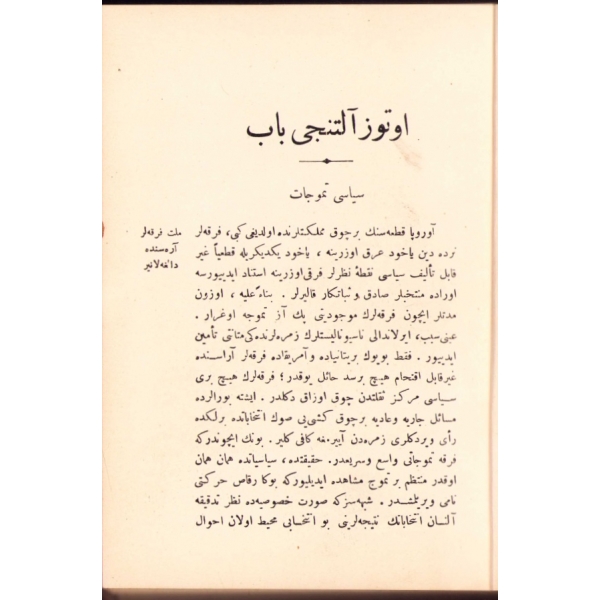 اوتوز آلتنجی باب
سیاسی تموجات
ملت فرقه‌لر
آره‌سنده
دالغه‌لانیر
آوروپا قطعه‌سنك برچوق مملكتلرنده اولدیغی كبی، فرقه‌لر
نرده دین یاخود عرق اوزرینه ، یاخود یكدیكریله قطعیاً غیر
قابل تألیف سیاسی نقطهٔ نظرلر فرقی اوزرینه استناد ایدییورسه
اوراده منتخبلر صادق و ثباتكار قالیرلر . بناءً علیه ، اوزون
مدتلر ایچون فرقه‌لرك موجودیتی پك آز تموجه اوغرار .
عینی سبب، ایرلاندالی ناسیونالیستلرك زمره‌لرنده‌كی متانتی تأمین
ایدییور . فقط بویوك بریتانیاده و آمریقاده فرقه‌لر آراسنده
غیرقابل اقتحام هیچ برسد حائل یوقدر؛ فرقه‌لرك هیچ بری
سیاسی مركز ثقلتدن چوق اوزاق دكلدر . ایشته بورالرده
مسائل جاریه و عادیه برچوق كشی‌یی صوك انتخاباتده برلكده
رأی ویردكلری زمره‌دن آییرمغه كافی كلیر . بونك ایچوندركه
فرقه تموجاتی واسع و سریعدر. حقیقتده، سیاسیاتده همان همان
اوقدر منتظم بر تموج مشاهده ایدیلیوركه بوكا رقاص حركتی
نامی ویریلمشدر . شبهه‌سزكه صورت خصوصیه‌ده نظر تدقیقه
آلنان انتخاباتك نتیجه‌لرینی بو انتخابی محیط اولان احوال